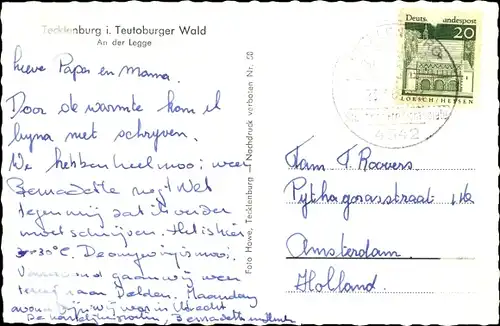 Tecklenburg i. Teutoburger Wald
An der Legge
Lieve Papa en Mama.
Door de warmte kom ik
bijna niet schrijven.
We hebben heel mooi weer
Bernadette
tegen mij dat ik verder
moet schrijven. Het is hier
30°C. De omgeving is mooi.
gaan wij weer
terug naar Delden. Maandag
avond zijn wij weer in Utrecht
De hartelijke groeten, Bernadette
Foto Howe, Tecklenburg — Nachdruck verboten Nr. 58
Deutsche Bundespost
20
LORSCH/HESSEN
4542
Fam. T. Roovers.
Pythagorasstraat
Amsterdam.
Holland.